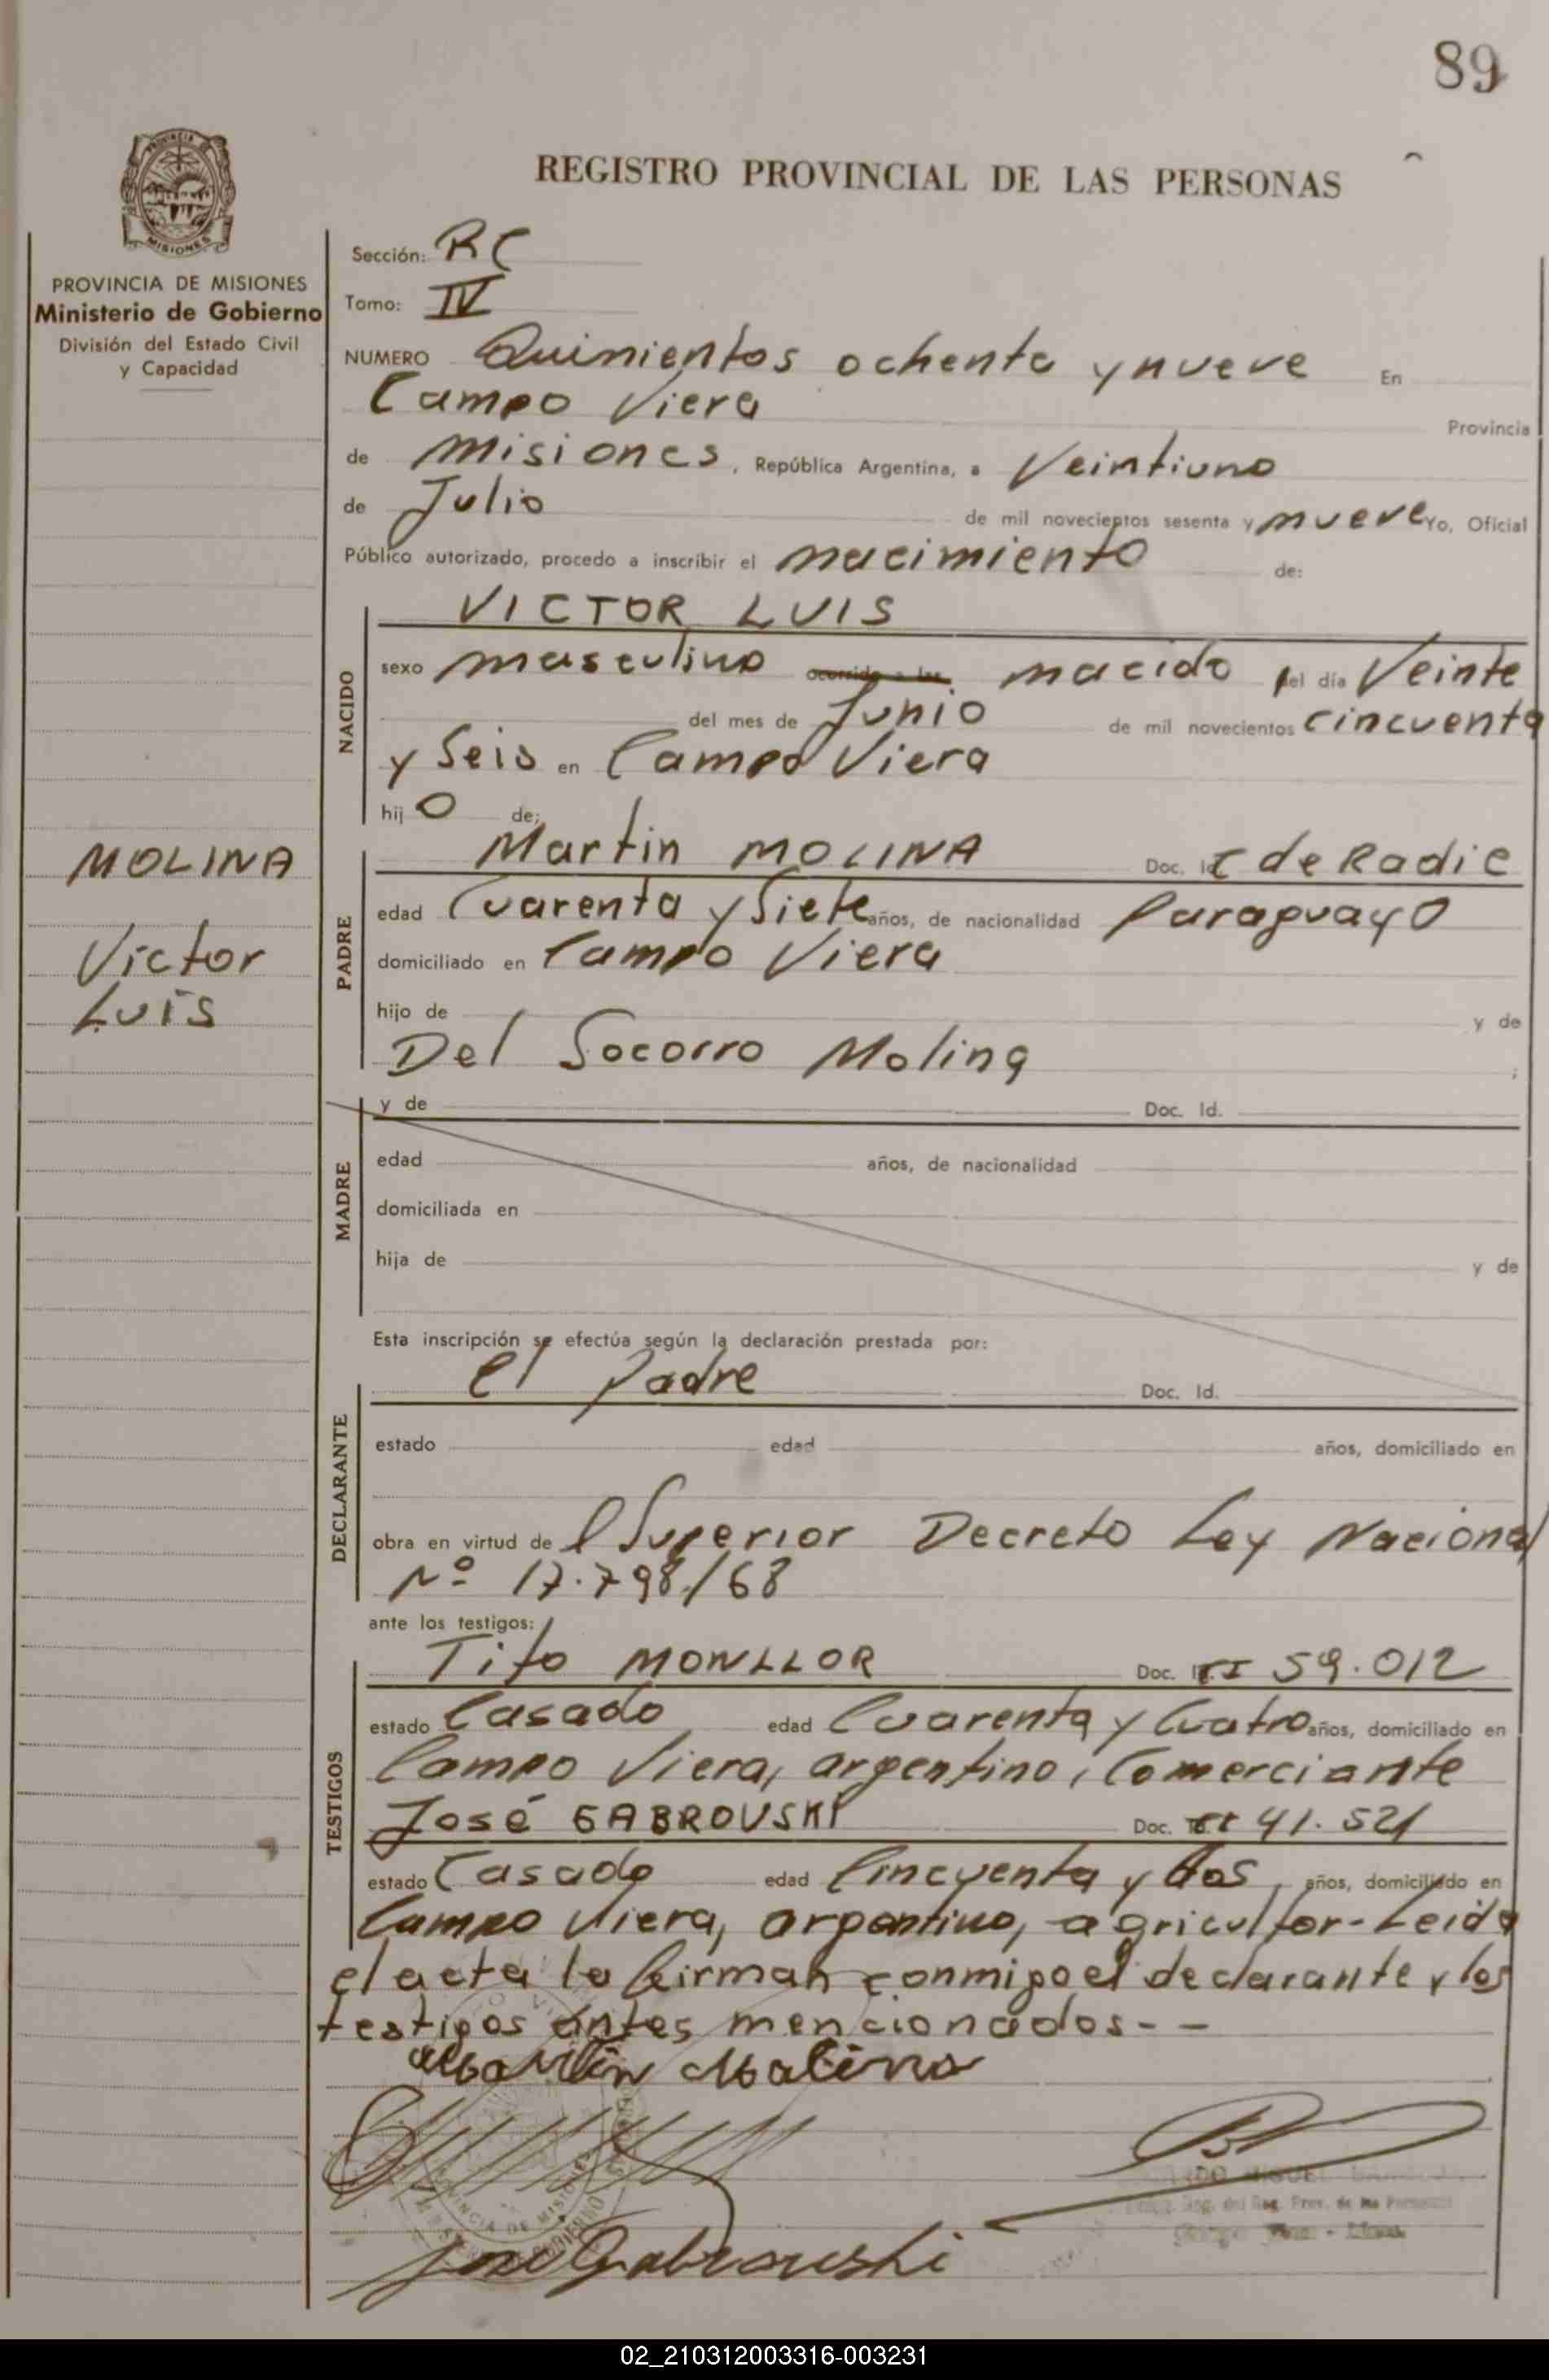 89
REGISTRO PROVINCIAL DE LAS PERSONAS
PROVINCIA
MISIONES
PROVINCIA DE MISIONES
Ministerio de Gobierno
División del Estado Civil
y Capacidad
Sección: RC
Tomo: IV
NUMERO Quinientos ochenta y nueve En
Campo Viera Provincia
de Misiones, República Argentina, a Veintiuno
de Julio de mil novecientos sesenta y nueve Yo, Oficial
Público autorizado, procedo a inscribir el nacimiento de:
NACIDO
VICTOR LUIS
sexo masculino ocurrido a las nacido el día Veinte
del mes de Junio de mil novecientos cincuenta
y Seis en Campo Viera
hijo de:
MOLINA
Victor
Luis
PADRE
Martin MOLINA Doc. Id. C de Radic
edad Cuarenta y Siete años, de nacionalidad Paraguayo
domiciliado en Campo Viera
hijo de y de
Del Socorro Molina ;
MADRE
y de Doc. Id.
edad años, de nacionalidad
domiciliada en
hija de y de
Esta inscripción se efectúa según la declaración prestada por:
DECLARANTE
el padre Doc. Id.
estado edad años, domiciliado en
obra en virtud de l Superior Decreto Ley Nacional
Nº 17.798/68
ante los testigos:
TESTIGOS
Tito MONLLOR Doc. 59.012
estado Casado edad Cuarenta y Cuatro años, domiciliado en
Campo Viera, argentino, Comerciante
José GABROVSKI Doc. 41.521
estado Casado edad Cincuenta y dos, años, domiciliado en
Campo Viera, argentino, agricultor - Leida
el acta la firman conmigo el declarante y los
testigos antes mencionados - -
Martin Molina
PROVINCIA DE MISIONES
José Gabrowski
02_210312003316-003231